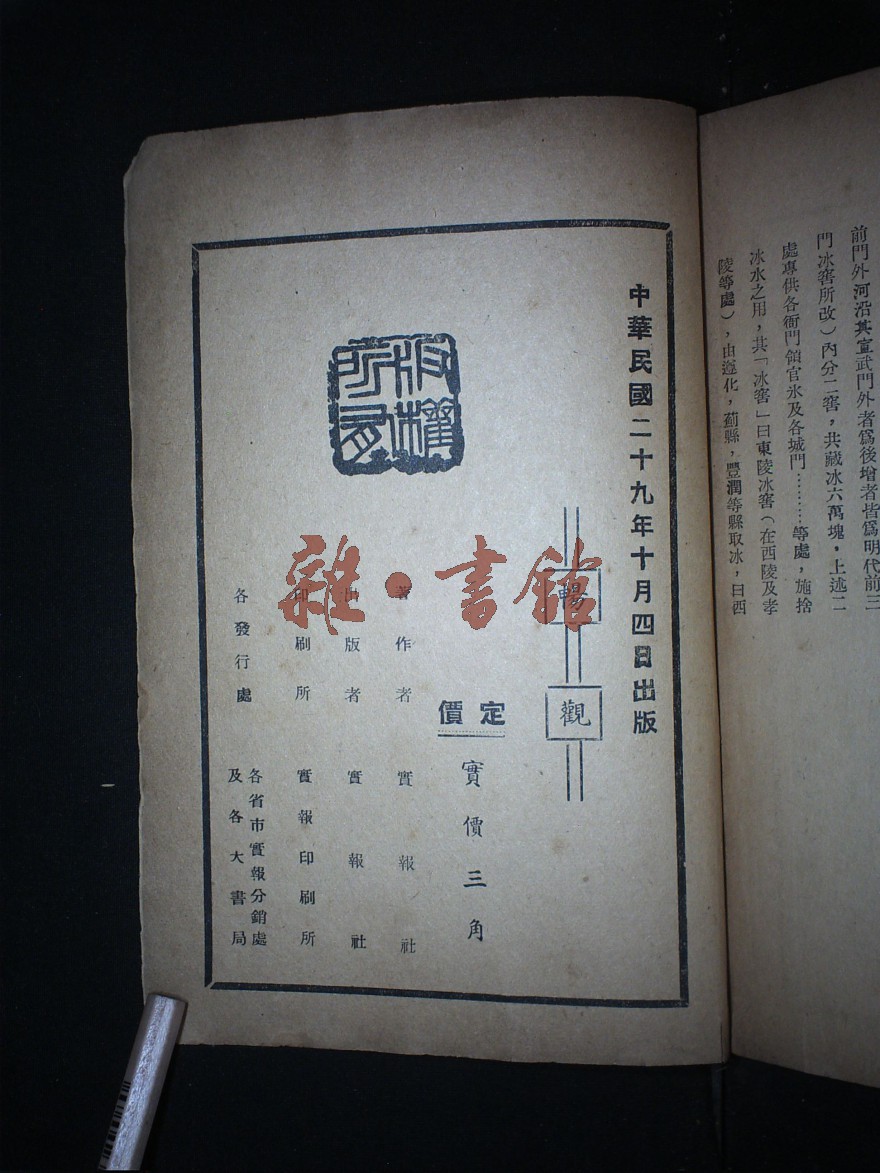 前門外河沿其宣武門外者爲後增者皆爲明代前三
門冰窖所改）內分二窖，共藏冰六萬塊，上述二
處專供各衙門領官氷及各城門………等處，施捨
冰水之用，其「冰窖」曰東陵冰窖（在西陵及孝
陵等處），由遵化，薊縣，豐潤等縣取冰，曰西
中華民國二十九年十月四日出版
暢觀
定價
實價三角
版權所有
著作者 實報社
出版者 實報社
印刷所 實報印刷所
各發行處 各省市實報分銷處
及各大書局
雜·書館